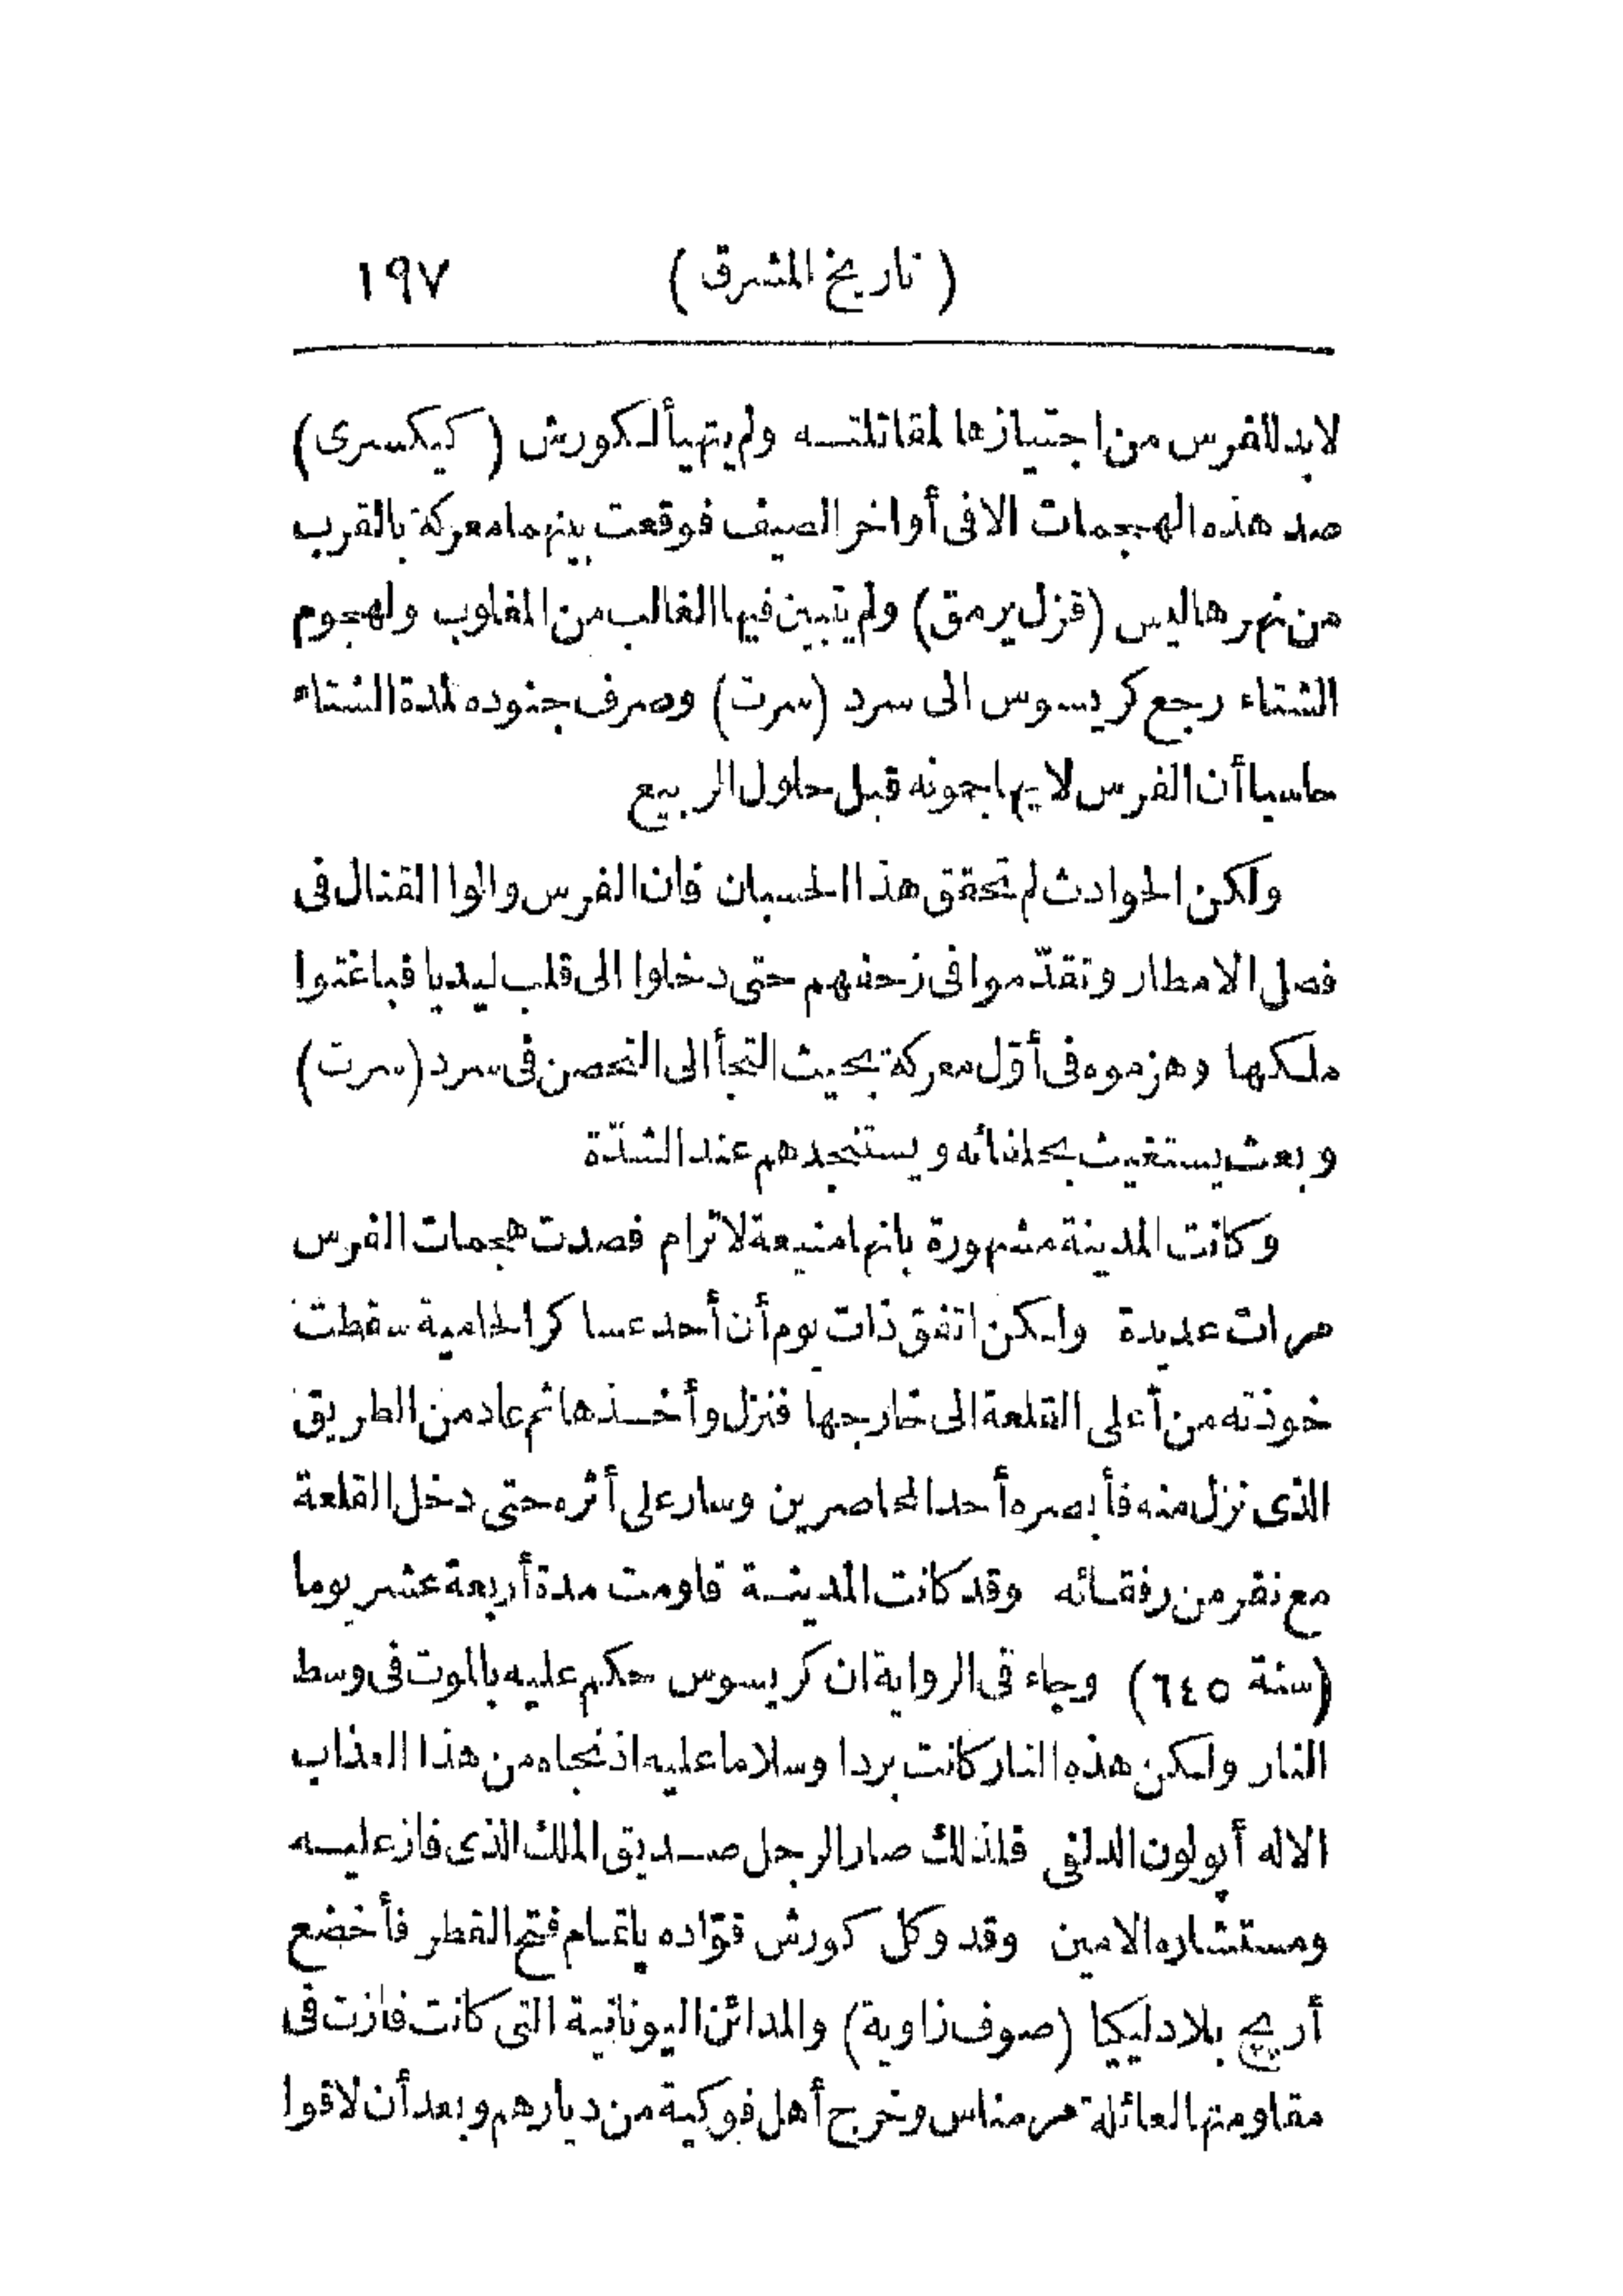 ( تاريخ المشرق ) ١٩٧
لابد للفرس من اجتيازها لمقاتلته ولم يتهيأ لكورش ( كيكسرى )
صد هذه الهجمات الا فى أواخر الصيف فوقعت بينهما معركة بالقرب
من نهر هاليس (قزل يرمق) ولم يتبين فيها الغالب من المغلوب ولهجوم
الشتاء رجع كريسوس الى سرد (سرت) وصرف جنوده لمدة الشتاء
حاسبا أن الفرس لا يهاجمونه قبل حلول الربيع
ولكن الحوادث لم تحقق هذا الحسبان فان الفرس والوا القتال فى
فصل الامطار وتقدّموا فى زحفهم حتى دخلوا الى قلب ليديا فباغتوا
ملكها وهزموه فى أوّل معركة بحيث التجأ الى التحصن فى سرد (سرت)
وبعث يستغيث بحلفائه ويستنجدهم عند الشدّة
وكانت المدينة مشهورة بانها منيعة لا ترام فصدت هجمات الفرس
مرات عديدة ولكن اتفق ذات يوم أن أحد عساكر الحامية سقطت
خوذته من أعلى القلعة الى خارجها فنزل وأخذها ثم عاد من الطريق
الذى نزل منه فأبصره أحد المحاصرين وسار على أثره حتى دخل القلعة
مع نفر من رفقائه وقد كانت المدينة قاومت مدة أربعة عشر يوما
(سنة ٦٤٥) وجاء فى الرواية ان كريسوس حكم عليه بالموت فى وسط
النار ولكن هذه النار كانت بردا وسلاما عليه اذ نجاه من هذا العذاب
الاله أبولون الدلفى فلذلك صار الرجل صديق الملك الذى فاز عليه
ومستشاره الامين وقد وكل كورش قوّاده باتمام فتح القطر فأخضع
أرپج بلاد ليكيا (صوف زاوية) والمدائن اليونانية التى كانت فازت فى
مقاومتها العائلة مرمناس وخرج أهل فوكية من ديارهم وبعد أن لاقوا